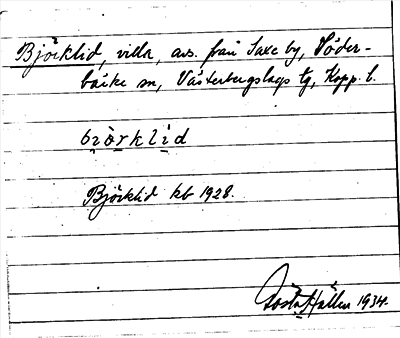 Björklid, villa, avs. från Saxe by, Söder-
bärke sn, Västerbergslags tg, Kopp. l.
biörklid
Björklid kb 1928.
Gösta Hallén 1934.